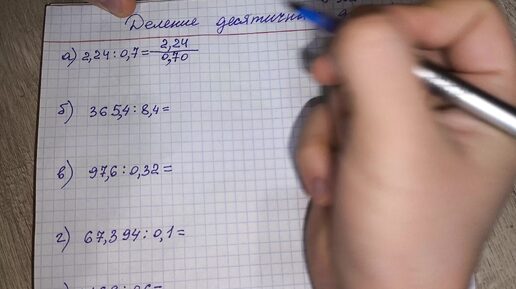 Деление
а) 2,24 : 0,7 = 2,24
0,70
б) 365,4 : 8,4 =
в) 97,6 : 0,32 =
г) 67,394 : 0,1 =